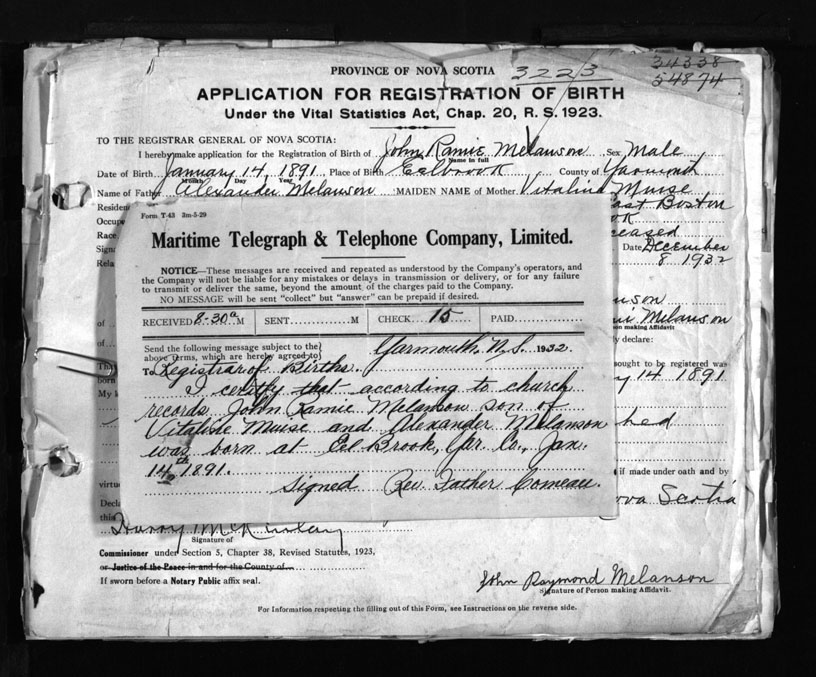 PROVINCE OF NOVA SCOTIA
3223
34338
54874
APPLICATION FOR REGISTRATION OF BIRTH
Under the Vital Statistics Act, Chap. 20, R. S. 1923.
TO THE REGISTRAR GENERAL OF NOVA SCOTIA:
I hereby make application for the Registration of Birth of John Ramie Melanson Sex Male
Name in full
Date of Birth January 14, 1891 Place of Birth Eelbrook County of Yarmouth
Month Day Year
Name of Father Alexander Melanson MAIDEN NAME of Mother Vitaline Muise
Residen East Boston
Occup
Race ceased
Signa Date December
Rela 8 1932
Form T-43 3m-5-29
Maritime Telegraph & Telephone Company, Limited.
NOTICE—These messages are received and repeated as understood by the Company's operators, and
the Company will not be liable for any mistakes or delays in transmission or delivery, or for any failure
to transmit or deliver the same, beyond the amount of the charges paid to the Company.
NO MESSAGE will be sent "collect" but "answer" can be prepaid if desired.
RECEIVED 8-30a M SENT M CHECK 15 PAID
Send the following message subject to the
above terms, which are hereby agreed to
Yarmouth N.S. 1932.
To Registrar of Births.
I certify that according to church
records John Ramie Melanson son of
Vitalise Muise and Alexander Melanson
was born at Eel Brook, Yar. Co., Jan.
14th 1891.
Signed Rev. Father Comeau.
nson
Melanson
on making Affidavit.
y declare:
of
of
Tha ought to be registered was
born y 14 1891
My k
hed
if made under oath and by
virtue
Decla ova Scotia
this
Harry McKinlay
Signature of
Commissioner under Section 5, Chapter 38, Revised Statutes, 1923,
or Justice of the Peace in and for the County of
If sworn before a Notary Public affix seal.
John Raymond Melanson
Signature of Person making Affidavit.
For Information respecting the filling out of this Form, see Instructions on the reverse side.